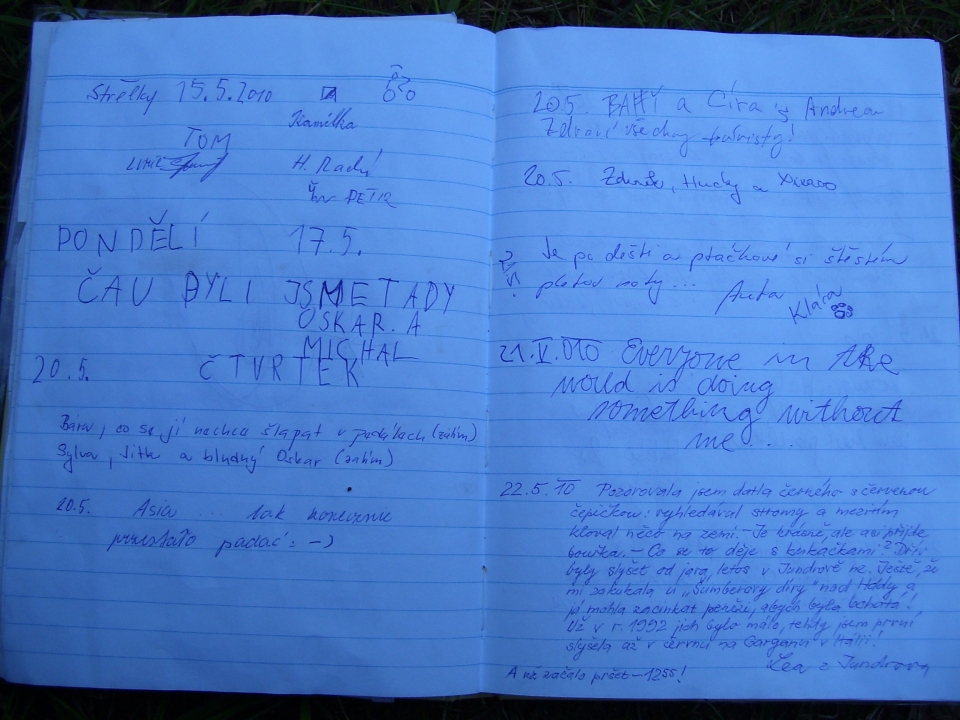 Střelky 15.5.2010
Kamilka
TOM
H. Radí
PETR
PONDĚLÍ 17.5.
ČAU BYLI JSME TADY
OSKAR. A
MICHAL
20.5. ČTVRTEK
Bára, co se jí nechce šlapat v padělách (zatím)
Sylva, Jitk a bludný Oskar (zatím)
20.5. Asia ... tak konecznie
przestało padać :-)
20.5. BAŘÍ a Círa z Andrea
Zdraví všechny turisty!
20.5. Zdeněk, Hucky a
Je po dešti a ptáčkové si štěstím
pletou noty...
Klára
21.V.010 Everyone in the
world is doing
something without
me...
22.5.10 Pozorovala jsem datla černého s červenou
čepičkou: vyhledával stromy a mezitím
kloval něco na zemi. - Je krásně, ale asi přijde
bouřka. - Co se to děje s kukačkami?
byly slyšet od jara, letos v Jundrově ne. Ještě, že
mi zakukala u „Šumberovy díry" nad Hády a
já mohla zacinkat penězi, abych byla bohatá!
Už v r. 1992 jich bylo málo, tehdy jsem první
slyšela až v červnu na Garganu v Itálii!
Lea z Jundrova
A už začalo pršet - 12⁵⁵!